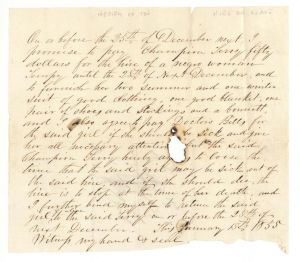 On or before the 25th of December next I
promise to pay Champion Terry fifty
dollars for the hire of a negro woman
Tempy until the 25th of Next December, and
to furnish her two Summer and one winter
suit of good clothing, one good blanket, one
pair of shoes and stockings and a bonnett
and I also agree to pay Doctor Bills for
the said girl if she should be sick and give
her all necessary attention but the said
Champion Terry hereby agrees to loose the
time that the said girl may be sick out of
the said hire and if she should die the
hire is to stop at the time of her death, and
I further bind myself to return the said
girl to the said Terry on or before the 25th of
next December. This January 1855
Witness my hand & seal